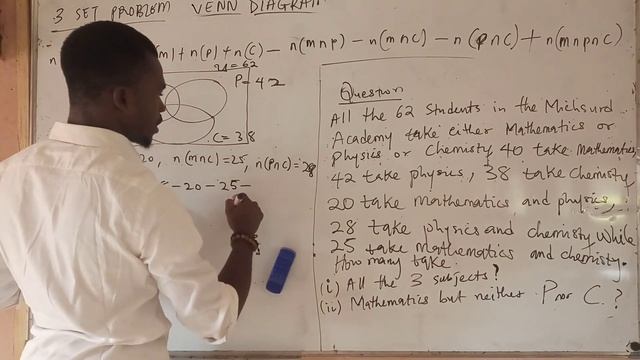 3 SET PROBLEM VENN DIAGRAM
n(m) + n(p) + n(C) - n(m∩p) - n(m∩C) - n(p∩C) + n(m∩p∩C)
u = 62
P = 42
C = 38
20, n(m∩C) = 25, n(p∩C) = 28
- 20 - 25 -
Question
All the 62 Students in the Michsurd
Academy take either Mathematics or
physics or Chemistry 40 take Mathematics,
42 take physics, 38 take Chemistry
20 take mathematics and physics,
28 take physics and chemistry while
25 take Mathematics and chemistry.
How many take
(i) All the 3 subjects?
(ii) Mathematics but neither P nor C.?